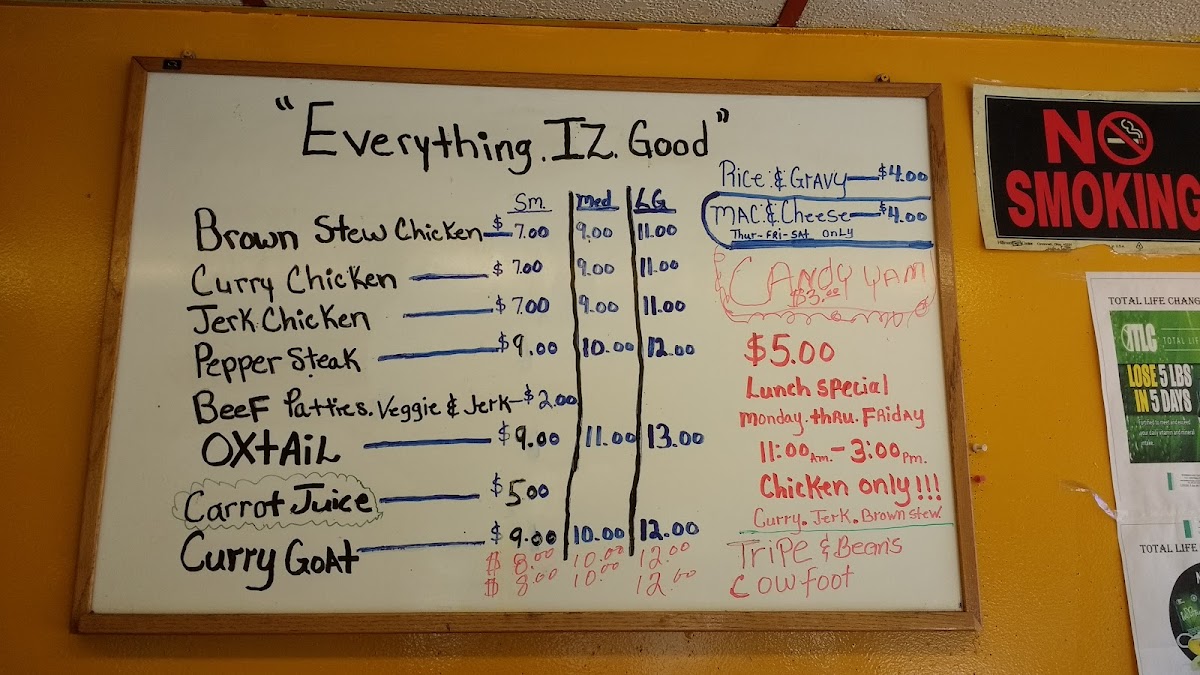 "Everything. IZ. Good"
Sm. med LG
Brown Stew Chicken $ 7.00 9.00 11.00
Curry Chicken $ 7.00 9.00 11.00
Jerk Chicken $ 7.00 9.00 11.00
Pepper Steak $9.00 10.00 12.00
Beef Patties. Veggie & Jerk-$2.00
OXtAiL $9.00 11.00 13.00
Carrot Juice $5.00
Curry GoAt $9.00 10.00 12.00
$ 8.00 10.00 12.00
$ 8.00 10.00 12.00
Rice & GrAvy $4.00
MAC & Cheese $4.00
Thur-FRi-SAt only
CANDY YAM
$3.00
$5.00
Lunch special
monday. thru. FRiday
11:00 Am. - 3:00 Pm.
Chicken only!!!
Curry. Jerk. Brown stew.
TRiPe & Beans
Cowfoot
NO
SMOKING
TOTAL LIFE CHANG
TLC TOTAL LIF
LOSE 5 LBS
IN 5 DAYS
TOTAL LIFE